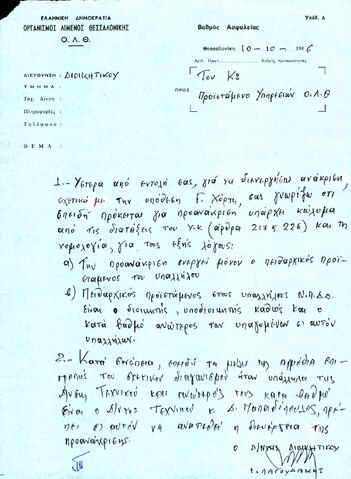 ΕΛΛΗΝΙΚΗ ΔΗΜΟΚΡΑΤΙΑ
Υπόδ. Δ
ΟΡΓΑΝΙΣΜΟΣ ΛΙΜΕΝΟΣ ΘΕΣΣΑΛΟΝΙΚΗΣ
Βαθμός Ασφαλείας
Ο. Λ. Θ.
Θεσσαλονίκη 10-10- 1986
Αριθ. Πρωτ. Βαθμός προτεραιότητας
ΔΙΕΥΘΥΝΣΗ : ΔΙΟΙΚΗΤΙΚΟΥ
Τον Κο
ΤΜΗΜΑ :
Ταχ. Δ/νση :
ΠΡΟΣ Προϊστάμενο Υπηρεσιών Ο.Λ.Θ
Πληροφορίες :
Τηλέφωνο :
ΘΕΜΑ :
1.- Ύστερα από εντολή σας, γιά να διενεργήσω ανάκριση,
σχετικά με την υπόθεση Γ. Χόρτη, σας γνωρίζω ότι
επειδή πρόκειται για προανάκριση υπάρχει κάλυμα
από τις διατάξεις του Υ.Κ (άρθρα 217 & 226) και τη
νομολογία, για τους εξής λόγους:
α) Την προανάκριση ενεργεί μόνον ο πειθαρχικός προϊ-
στάμενος του υπαλλήλου
β) Πειθαρχικός προϊστάμενος στους υπαλλήλους Ν.Π.Δ.Δ.
είναι ο διοικητής, υποδιοικητής καθώς και ο
κατά βαθμό ανώτερος των υπαγομένων σι αυτόν
υπαλλήλων.
2.- Κατά συνέπεια, επειδή τα μέλη της αρμόδια επι-
τροπής του σχετικού διαγωνισμού ήταν υπάλληλοι της
Δ/νσης Τεχνικού και ανώτερός τους κατά βαθμό
είναι ο Δ/ντης Τεχνικού κ. Δ. Παπαδόπουλος, πρέ-
πει σ' αυτόν να ανατεθεί η διενέργεια της
προανάκρισης.
Ο Δ/ΝΤΗΣ ΔΙΟΙΚΗΤΙΚΟΥ